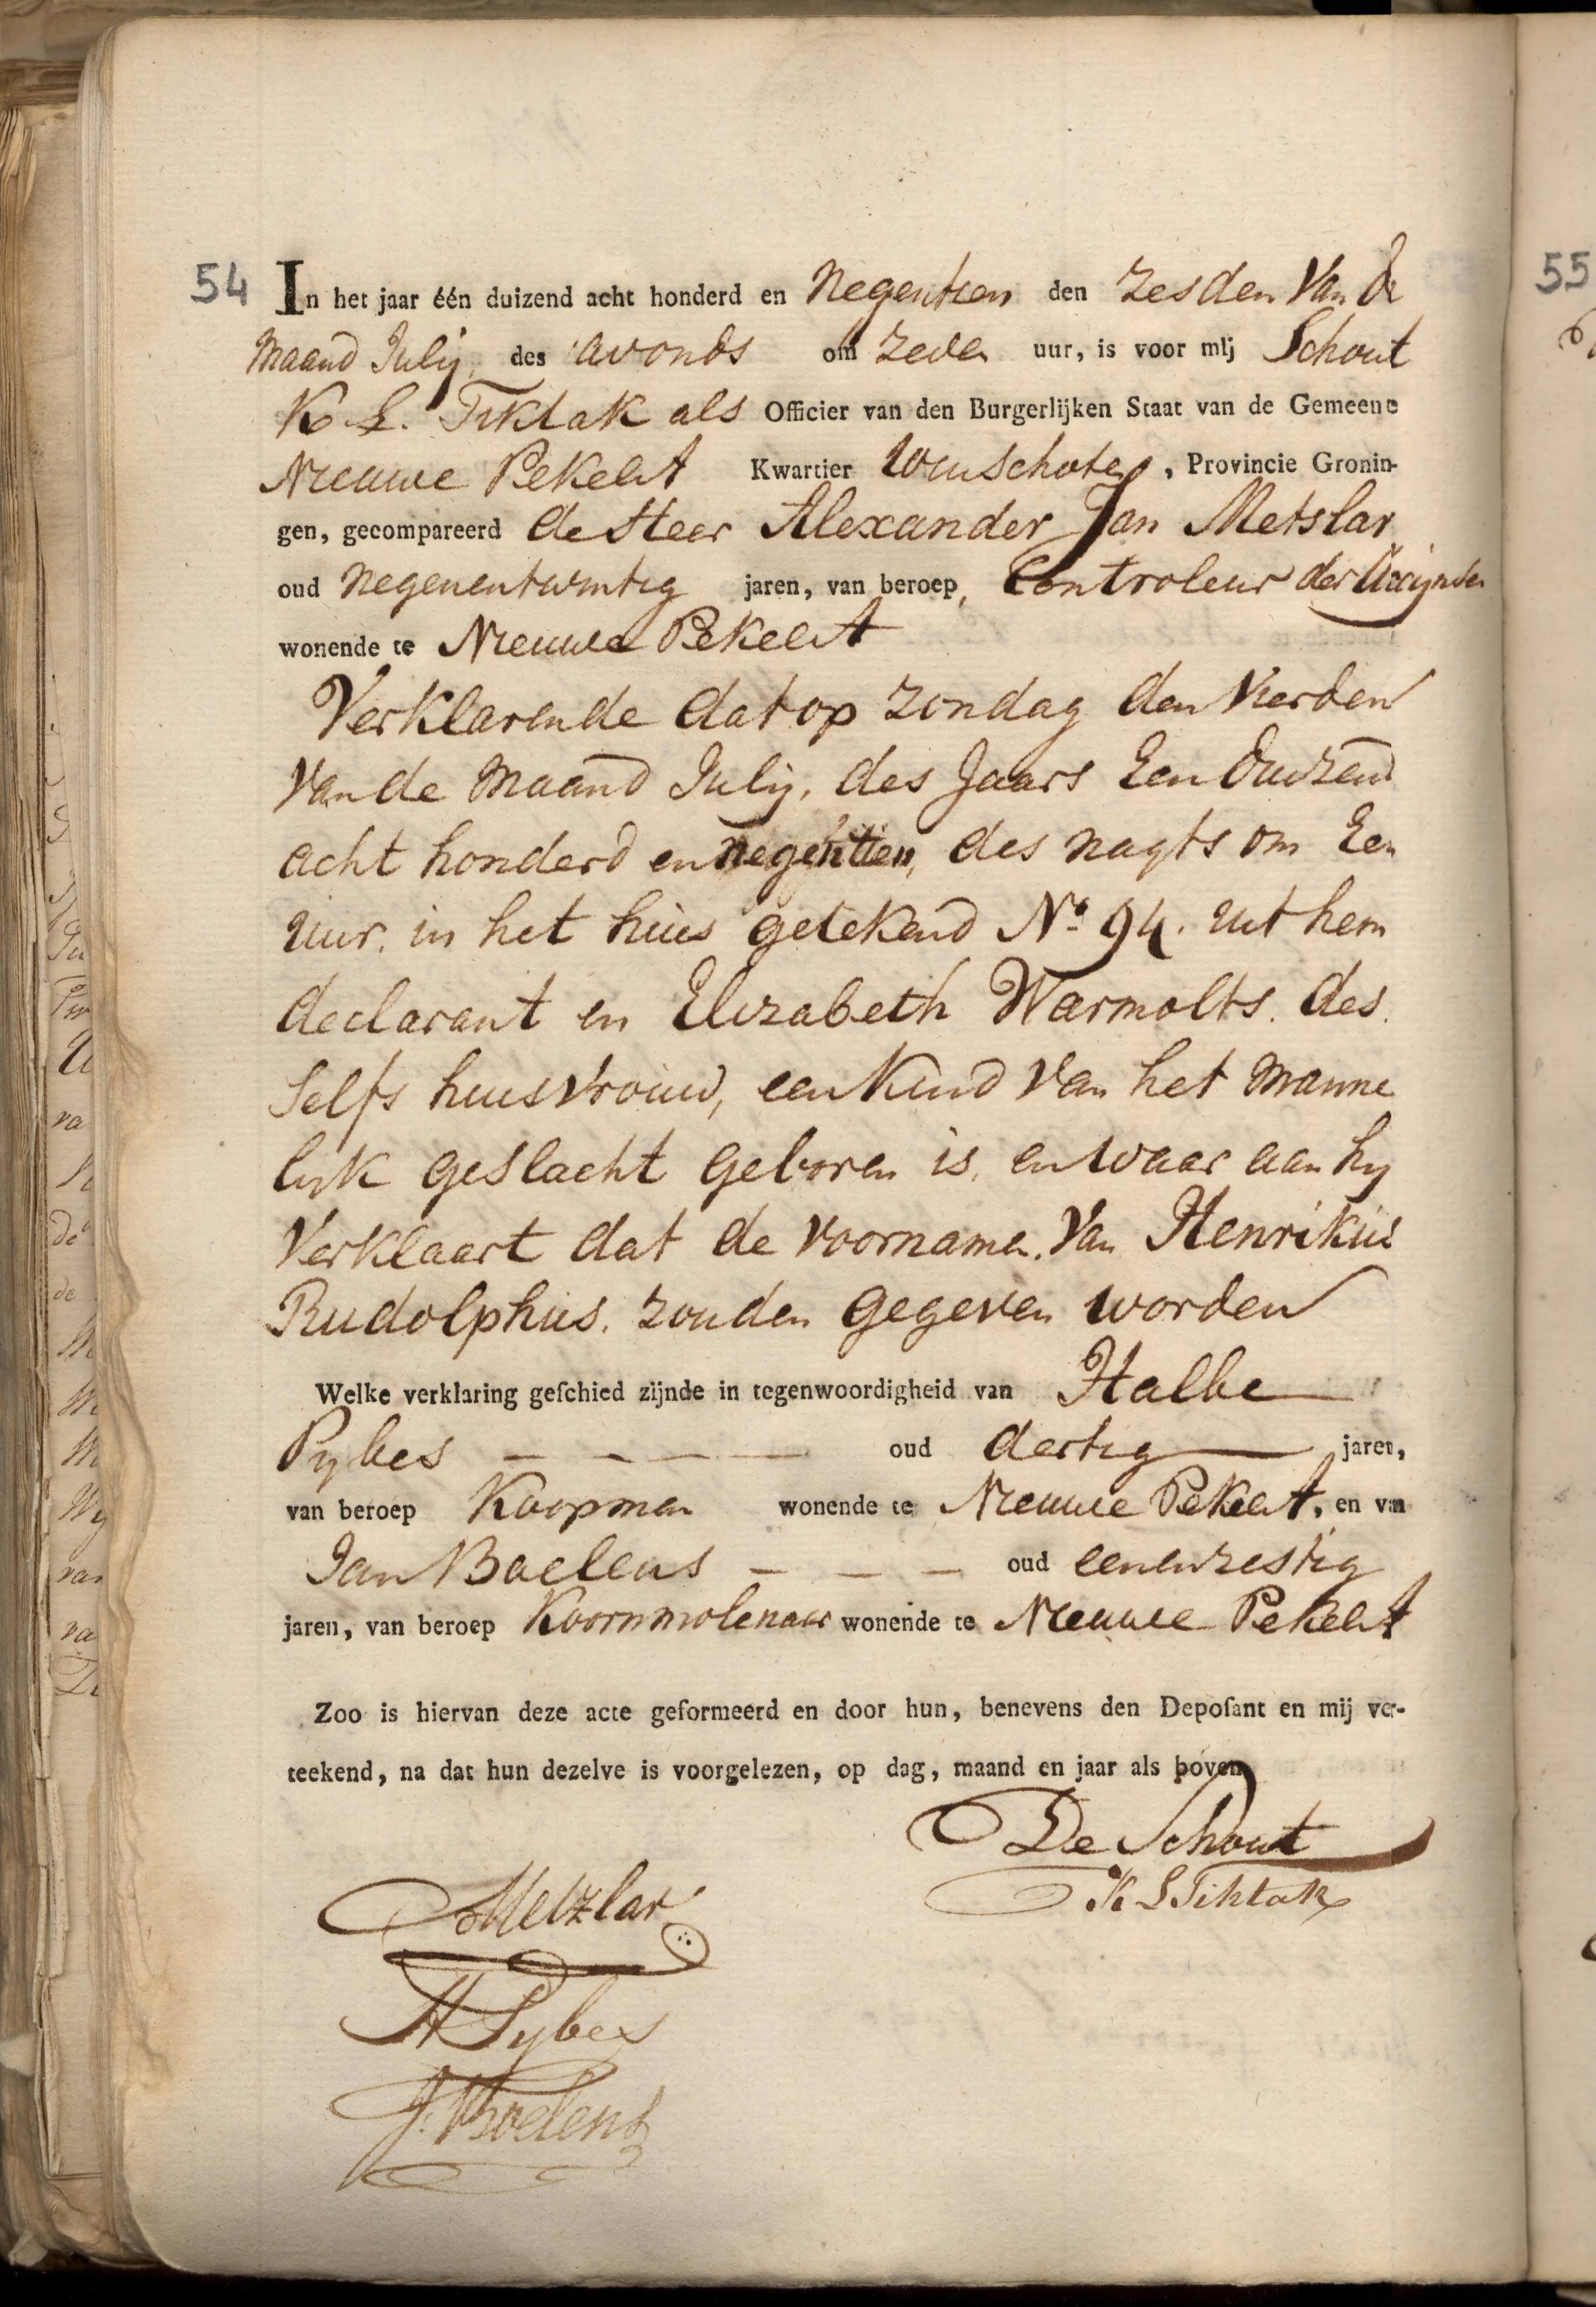 54 In het jaar één duizend acht honderd en Negentien den zesden Van de
Maand Julij, des avonds om zeven uur, is voor mij Schout
K. L. Tiktak als Officier van den Burgerlijken Staat van de Gemeente
Nieuwe PekelA Kwartier Winschoten, Provincie Gronin-
gen, gecompareerd de Heer Alexander Jan Metslar
oud Negenentwintig jaren, van beroep, Controleur der Accijnsen
wonende te Nieuwe PekelA
Verklarende dat op zondag den Vierden
Van de Maand Julij, des Jaars Een duizend
acht honderd en negentien, des nagts om Een
Uur. in het huis getekend No. 94. uit hem
declarant en Elizabeth Warmolts. des
Selfs huisvrouw, een Kind Van het Manne
lijk geslacht geboren is, en waar aan hij
Verklaart dat de voornamen. Van Henrikus
Rudolphus. zouden gegeven worden
Welke verklaring geschied zijnde in tegenwoordigheid van Halbe
Pybes oud dertig jaren,
van beroep Koopman wonende te Nieuwe PekelA, en van
Jan Boelens oud eenenzestig
jaren, van beroep Koornmolenaar wonende te Nieuwe PekelA
Zoo is hiervan deze acte geformeerd en door hun, benevens den Deposant en mij ver-
teekend, na dat hun dezelve is voorgelezen, op dag, maand en jaar als boven
De Schout
K L Tiktak
Metzlar
H Pybes
J. Boelens
55